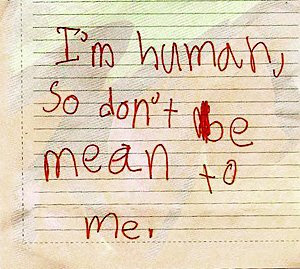 I'm human,
so don't be
mean to
me.